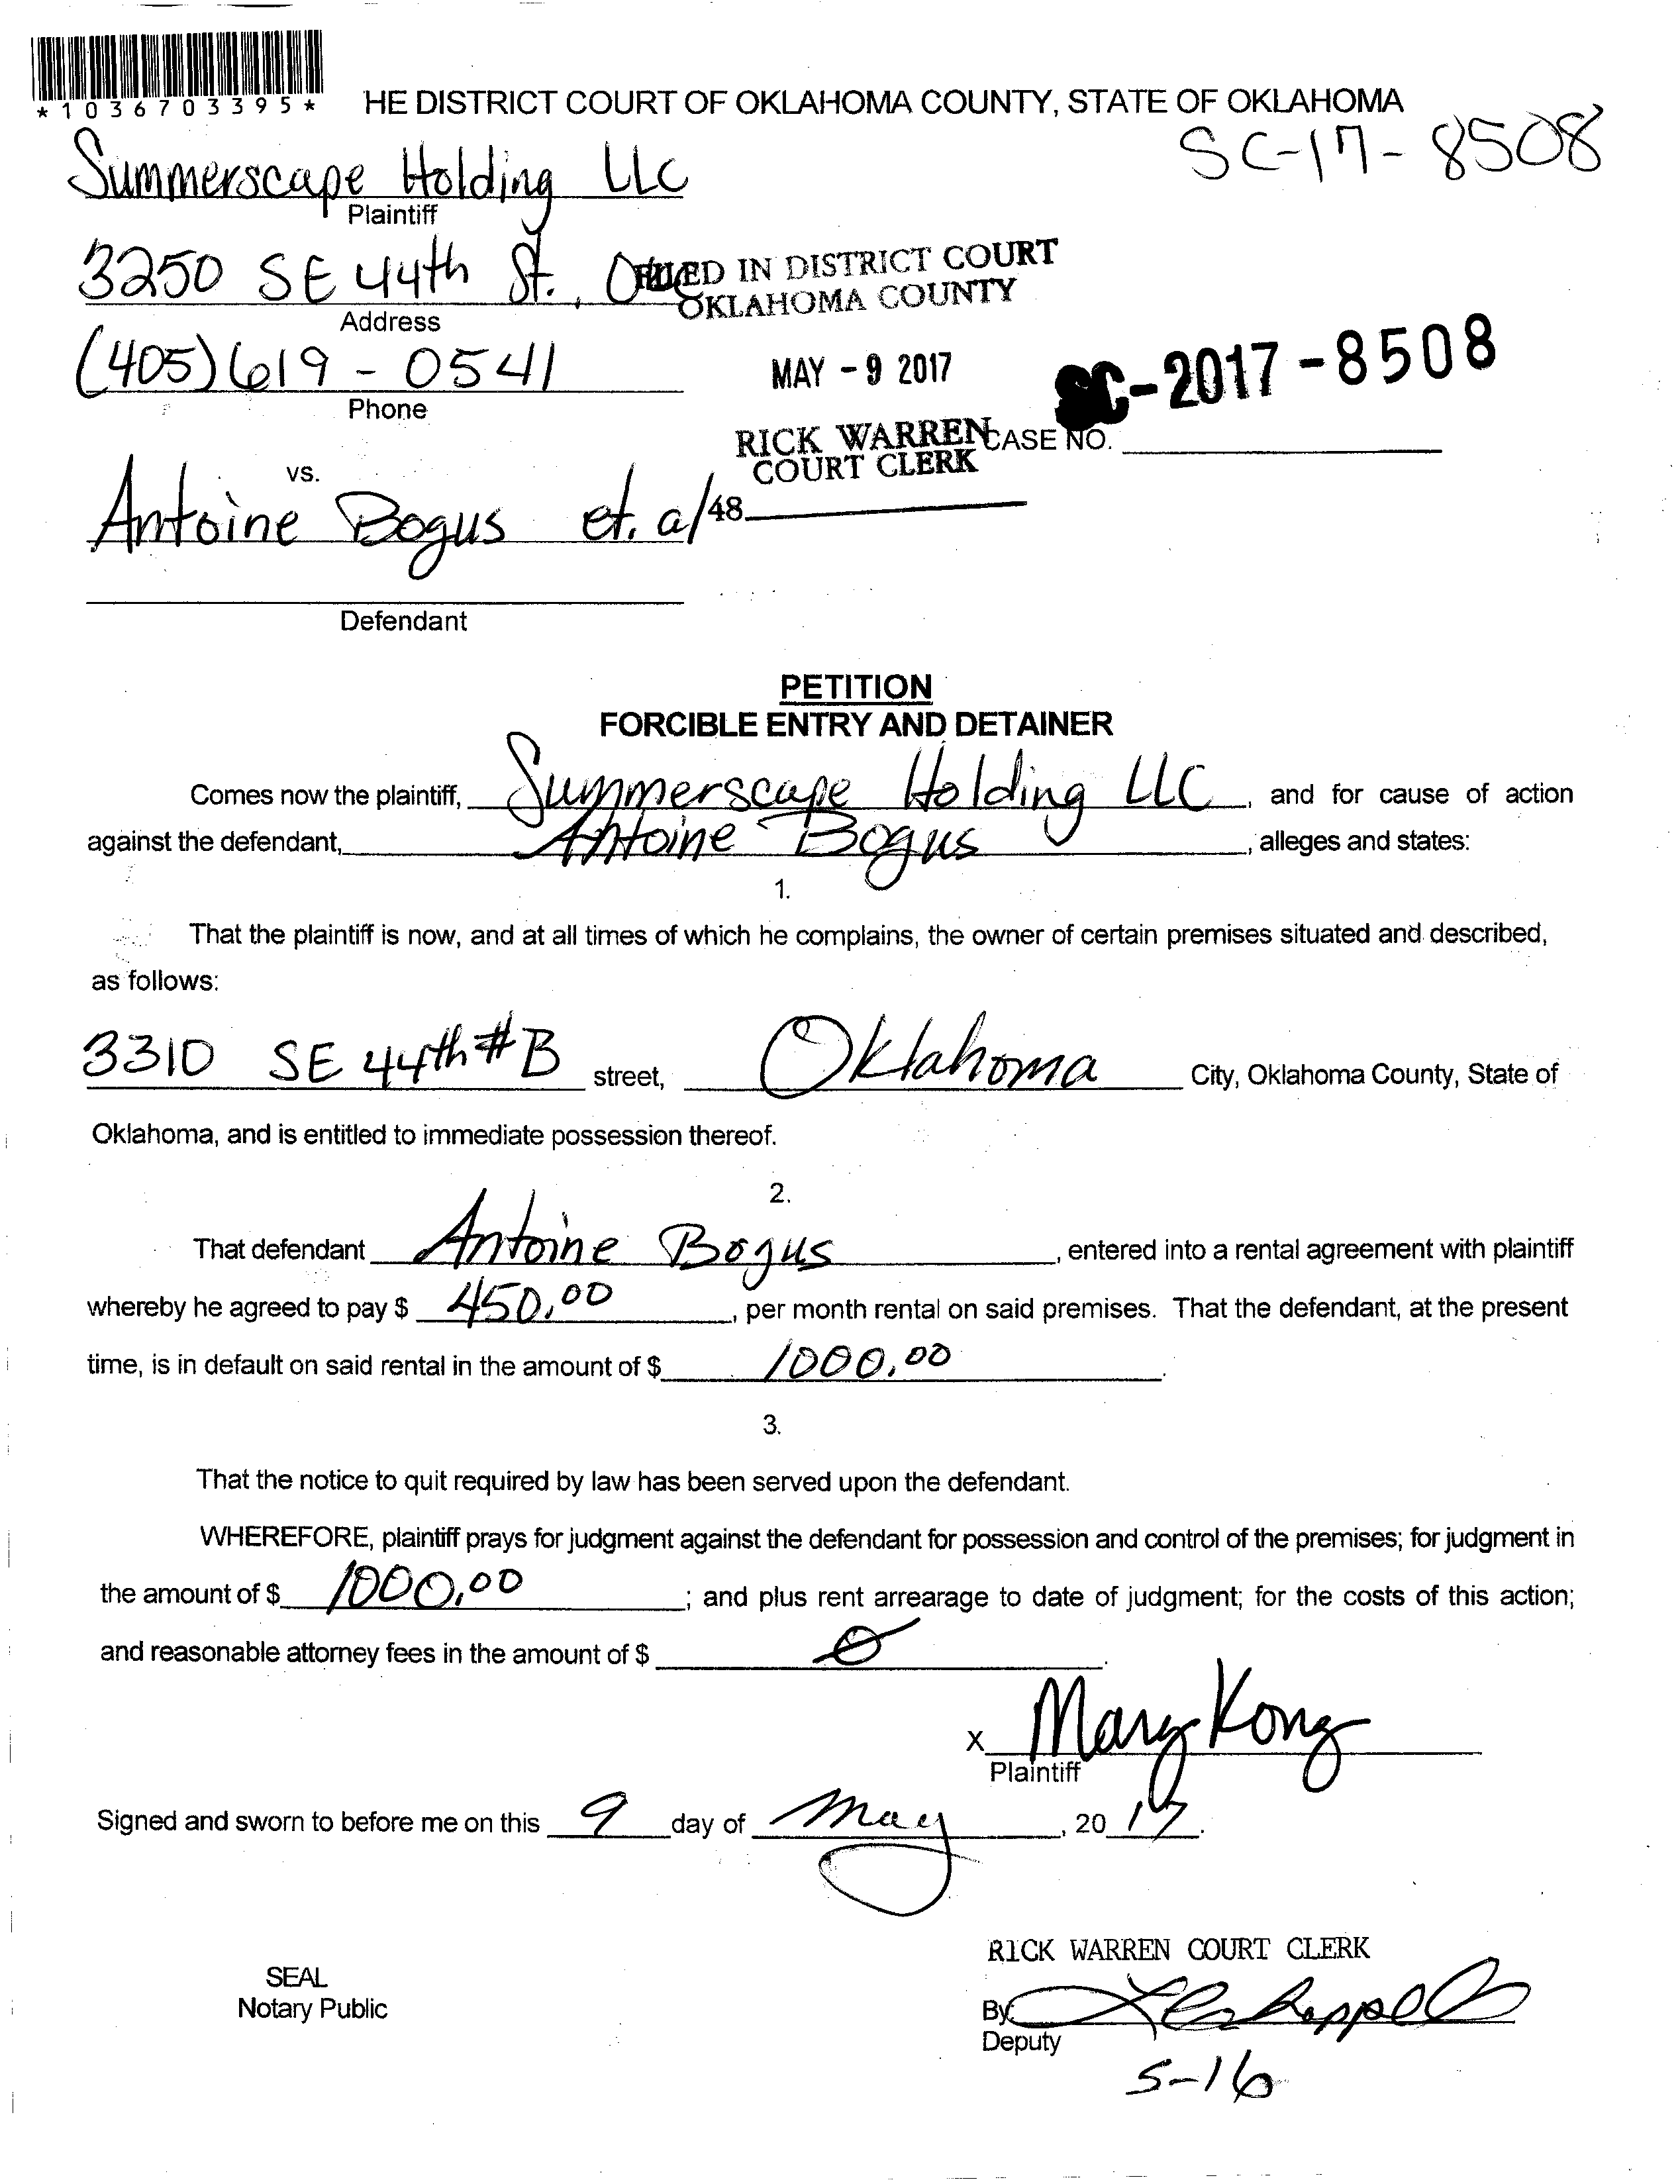 *1036703395*
HE DISTRICT COURT OF OKLAHOMA COUNTY, STATE OF OKLAHOMA
SC-17-8508
Summerscape Holding LLC
Plaintiff
3250 SE 44th St.,
FILED IN DISTRICT COURT
OKLAHOMA COUNTY
Address
(405) 619-0541
MAY - 9 2017
SC-2017-8508
Phone
RICK WARREN
COURT CLERK
CASE NO.
vs.
Antoine Bogus et. al
48
Defendant
PETITION
FORCIBLE ENTRY AND DETAINER
Comes now the plaintiff, Summerscape Holding LLC, and for cause of action
against the defendant, Antoine Bogus, alleges and states:
1.
That the plaintiff is now, and at all times of which he complains, the owner of certain premises situated and described,
as follows:
3310 SE 44th #B street, Oklahoma City, Oklahoma County, State of
Oklahoma, and is entitled to immediate possession thereof.
2.
That defendant Antoine Bogus, entered into a rental agreement with plaintiff
whereby he agreed to pay $ 450.00, per month rental on said premises. That the defendant, at the present
time, is in default on said rental in the amount of $ 1000.00.
3.
That the notice to quit required by law has been served upon the defendant.
WHEREFORE, plaintiff prays for judgment against the defendant for possession and control of the premises; for judgment in
the amount of $ 1000.00; and plus rent arrearage to date of judgment; for the costs of this action;
and reasonable attorney fees in the amount of $ 0.
X Mary Kong
Plaintiff
Signed and sworn to before me on this 9 day of May, 2017.
RICK WARREN COURT CLERK
SEAL
Notary Public
By
Deputy
5-16